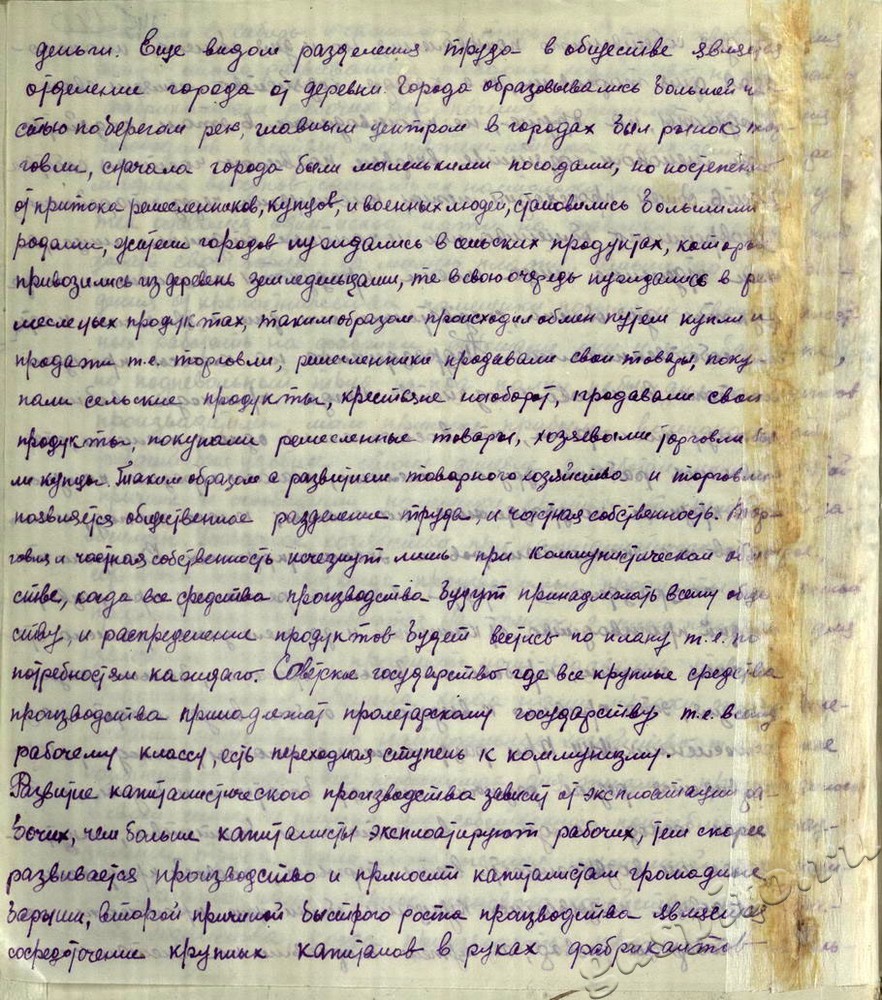 деньги. Еще видом разделения труда в обществе является
отделение города от деревни. Города образовывались большей ча-
стью по берегам рек, главным центром в городах был рынок тор-
говли, сначала города были маленькими посадами, но постепенно
от притока ремесленников, купцов, и военных людей, становились большими го-
родами, жители городов нуждались в сельских продуктах, которые
привозились из деревень земледельцами, те в свою очередь нуждались в ре-
месленых продуктах, таким образом происходил обмен путем купли и
продажи т.е. торговли, ремесленники продавали свои товары, поку-
пали сельские продукты, крестьяне наоборот, продавали свои
продукты, покупали ремесленные товары, хозяевами торговли бы-
ли купцы. Таким образом с развитием товарного хозяйства и торговли
появляется общественное разделение труда, и частная собственность. Тор-
говля и частная собственность исчезнут лишь при коммунистическом обще-
стве, когда все средства производства будут принадлежать всему обще-
ству, и распределение продуктов будет вестись по плану т.е. по
потребностям каждаго. Советское государство где все крупные средства
производства принадлежат пролетарскому государству т.е. всему
рабочему классу, есть переходная ступень к коммунизму.
Развитие капиталистического производства зависит от эксплоатации ра-
бочих, чем больше капиталисты эксплоатируют рабочих, тем скорее
развивается производство и приносит капиталистам громадные
барыши, второй причиной быстрого роста производства является
сосредоточение крупных капиталов в руках фабрикантов